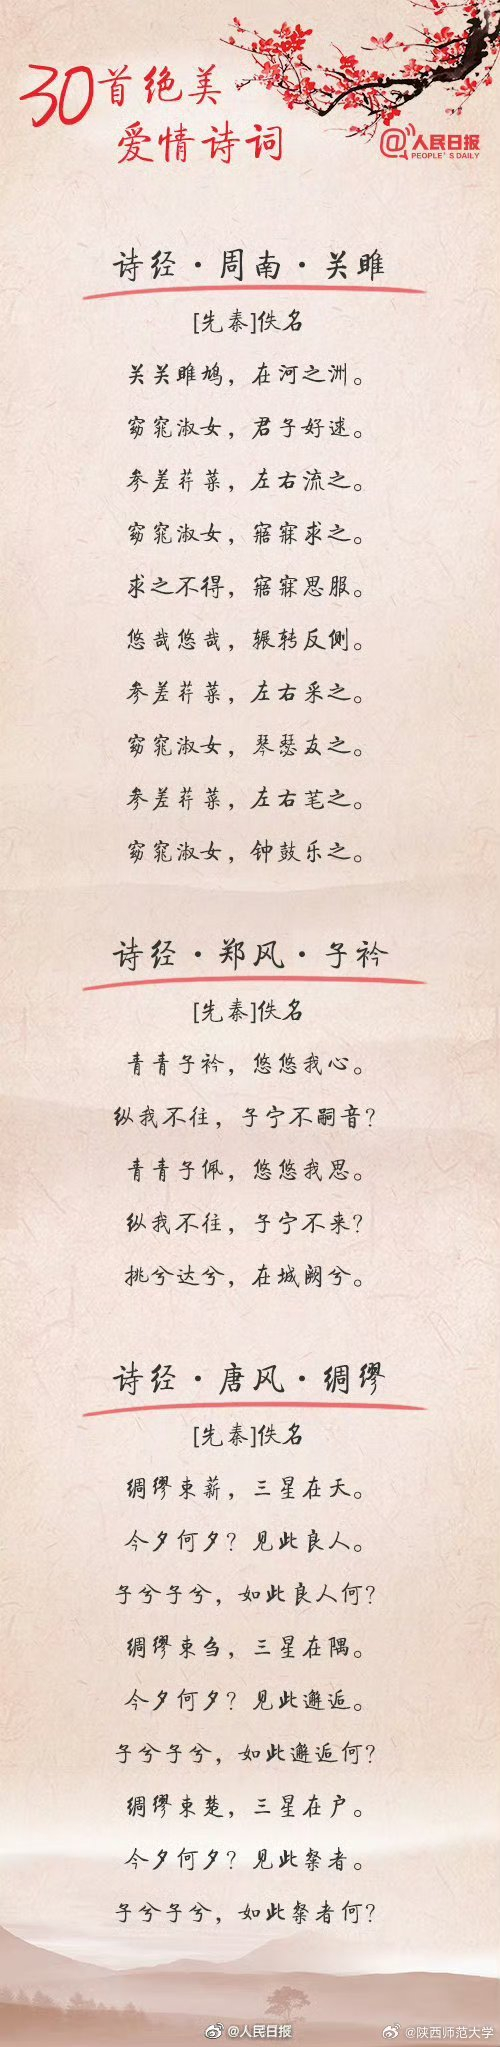 30首绝美
爱情诗词
@人民日报
PEOPLE'S DAILY
诗经·周南·关雎
[先秦]佚名
关关雎鸠，在河之洲。
窈窕淑女，君子好逑。
参差荇菜，左右流之。
窈窕淑女，寤寐求之。
求之不得，寤寐思服。
悠哉悠哉，辗转反侧。
参差荇菜，左右采之。
窈窕淑女，琴瑟友之。
参差荇菜，左右芼之。
窈窕淑女，钟鼓乐之。
诗经·郑风·子衿
[先秦]佚名
青青子衿，悠悠我心。
纵我不往，子宁不嗣音？
青青子佩，悠悠我思。
纵我不往，子宁不来？
挑兮达兮，在城阙兮。
诗经·唐风·绸缪
[先秦]佚名
绸缪束薪，三星在天。
今夕何夕？见此良人。
子兮子兮，如此良人何？
绸缪束刍，三星在隅。
今夕何夕？见此邂逅。
子兮子兮，如此邂逅何？
绸缪束楚，三星在户。
今夕何夕？见此粲者。
子兮子兮，如此粲者何？
@人民日报
@陕西师范大学